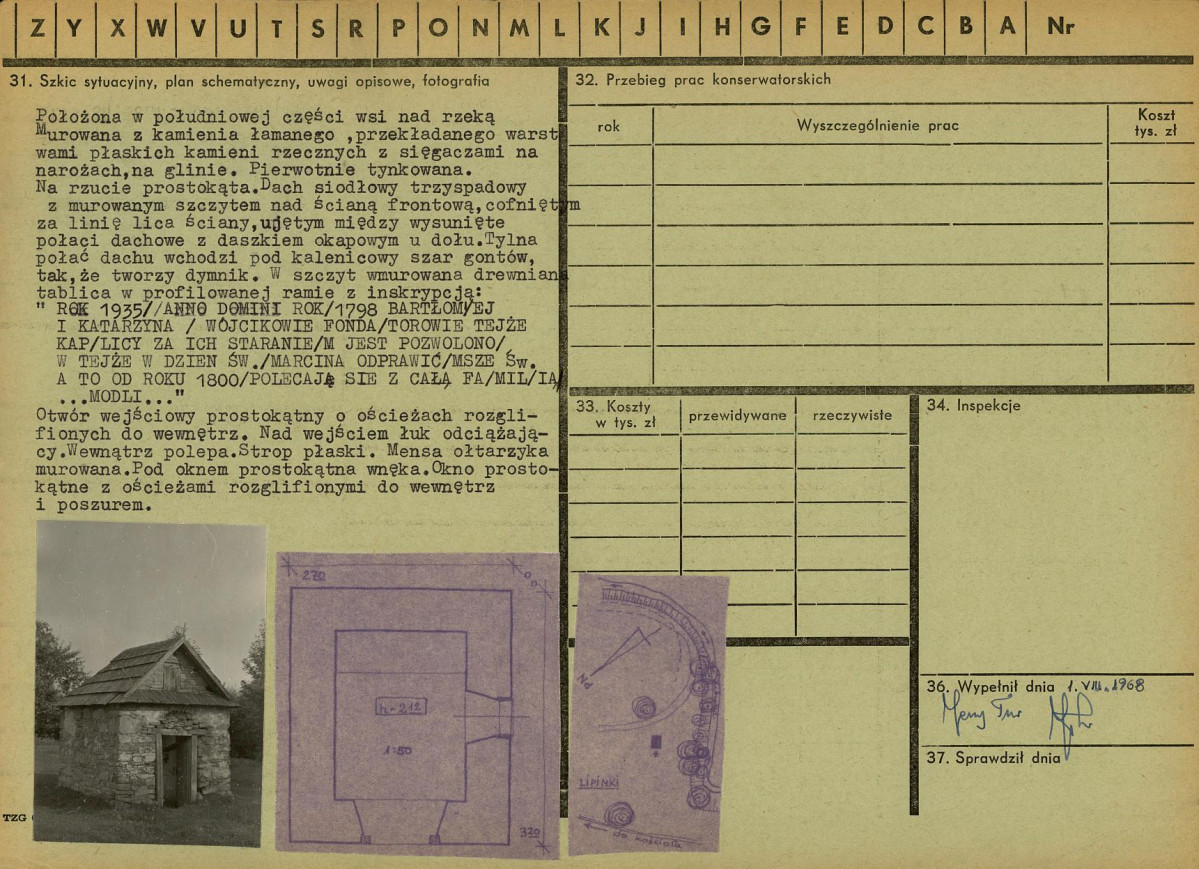 Z Y X W V U T S R P O N M L K J I H G F E D C B A Nr
31. Szkic sytuacyjny, plan schematyczny, uwagi opisowe, fotografia
Położona w południowej części wsi nad rzeką
Murowana z kamienia łamanego ,przekładanego warst
wami płaskich kamieni rzecznych z sięgaczami na
narożach,na glinie. Pierwotnie tynkowana.
Na rzucie prostokąta.Dach siodłowy trzyspadowy
z murowanym szczytem nad ścianą frontową,cofniętym
za linię lica ściany,ujętym między wysunięte
połaci dachowe z daszkiem okapowym u dołu.Tylna
połać dachu wchodzi pod kalenicowy szar gontów,
tak,że tworzy dymnik. W szczyt wmurowana drewniana
tablica w profilowanej ramie z inskrypcją:
" ROK 1935//ANNO DOMINI ROK/1798 BARTŁOM/EJ
I KATARZYNA / WÓJCIKOWIE FONDA/TOROWIE TEJŻE
KAP/LICY ZA ICH STARANIE/M JEST POZWOLONO/
W TEJŻE W DZIEN ŚW./MARCINA ODPRAWIĆ/MSZE Św.
A TO OD ROKU 1800/POLECAJĄ SIE Z CAŁĄ FA/MIL/IA/
...MODLI..."
Otwór wejściowy prostokątny o ościeżach rozgli-
fionych do wewnętrz. Nad wejściem łuk odciążają-
cy.Wewnątrz polepa.Strop płaski. Mensa ołtarzyka
murowana.Pod oknem prostokątna wnęka.Okno prosto-
kątne z ościeżami rozglifionymi do wewnętrz
i poszurem.
270
h-212
1:50
320
PN
LIPINKI
do kościoła
TZG
32. Przebieg prac konserwatorskich
rok
Wyszczególnienie prac
Koszt
tys. zł
33. Koszty
w tys. zł
przewidywane
rzeczywiste
34. Inspekcje
36. Wypełnił dnia 1.VIII.1968
37. Sprawdził dnia